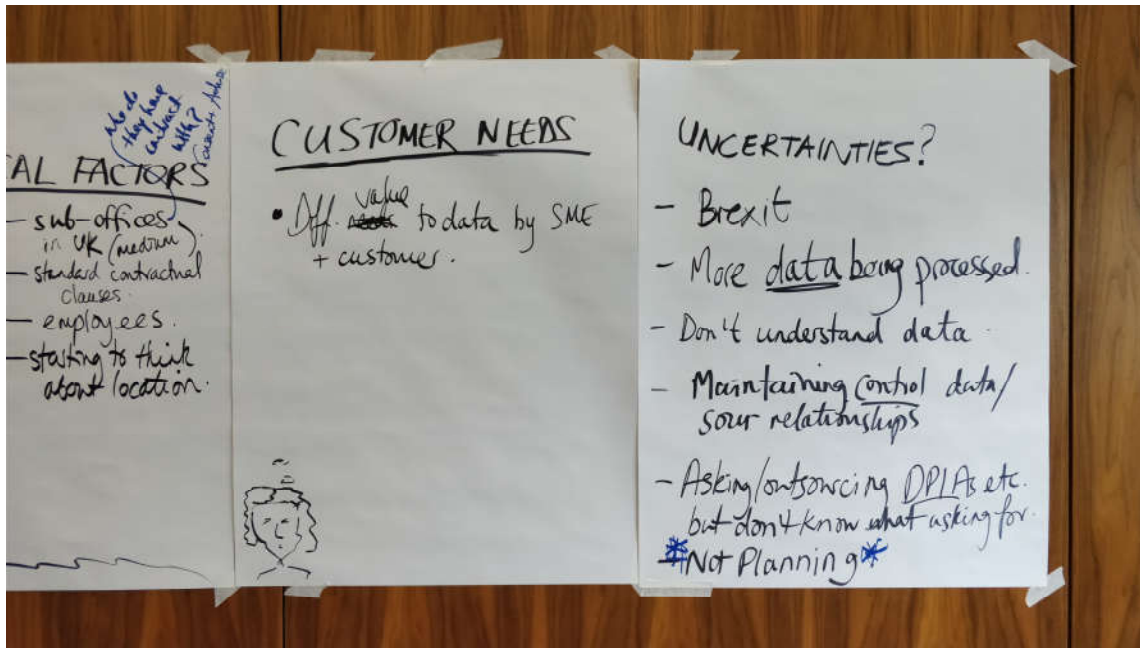 Who do
they have
contract
with?
AL FACTORS
— sub-offices
in UK (medium)
— standard contractual
clauses.
— employees.
— starting to think
about location.
CUSTOMER NEEDS
• Diff. value to data by SME
+ customer.
UNCERTAINTIES?
— Brexit
— More data being processed.
— Don't understand data.
— Maintaining control data/
sour relationships
— Asking/outsourcing DPIAs etc.
but don't know what asking for.
* Not Planning *